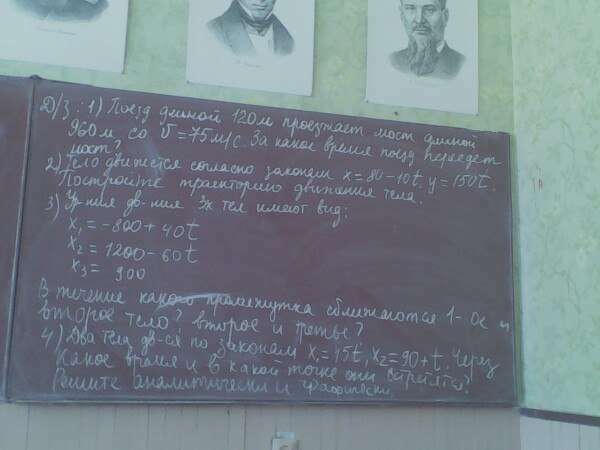 Д/З: 1) Поезд длиной 120м проезжает мост длиной
960м, со V = 75м/с. За какое время поезд переедет
мост?
2) Тело движется согласно законам x = 80 - 10t, y = 150t.
Постройте траекторию движения тела.
3) Ур-ния дв-ния 3х тел имеют вид:
x₁ = -800 + 40t
x₂ = 1200 - 60t
x₃ = 900
В течение какого промежутка сближаются 1-ое и
второе тело? второе и третье?
4) Два тела дв-ся по законам x₁ = 15t, x₂ = 90 + t. Через
какое время и в какой точке они встретятся?
аналитически и графически.